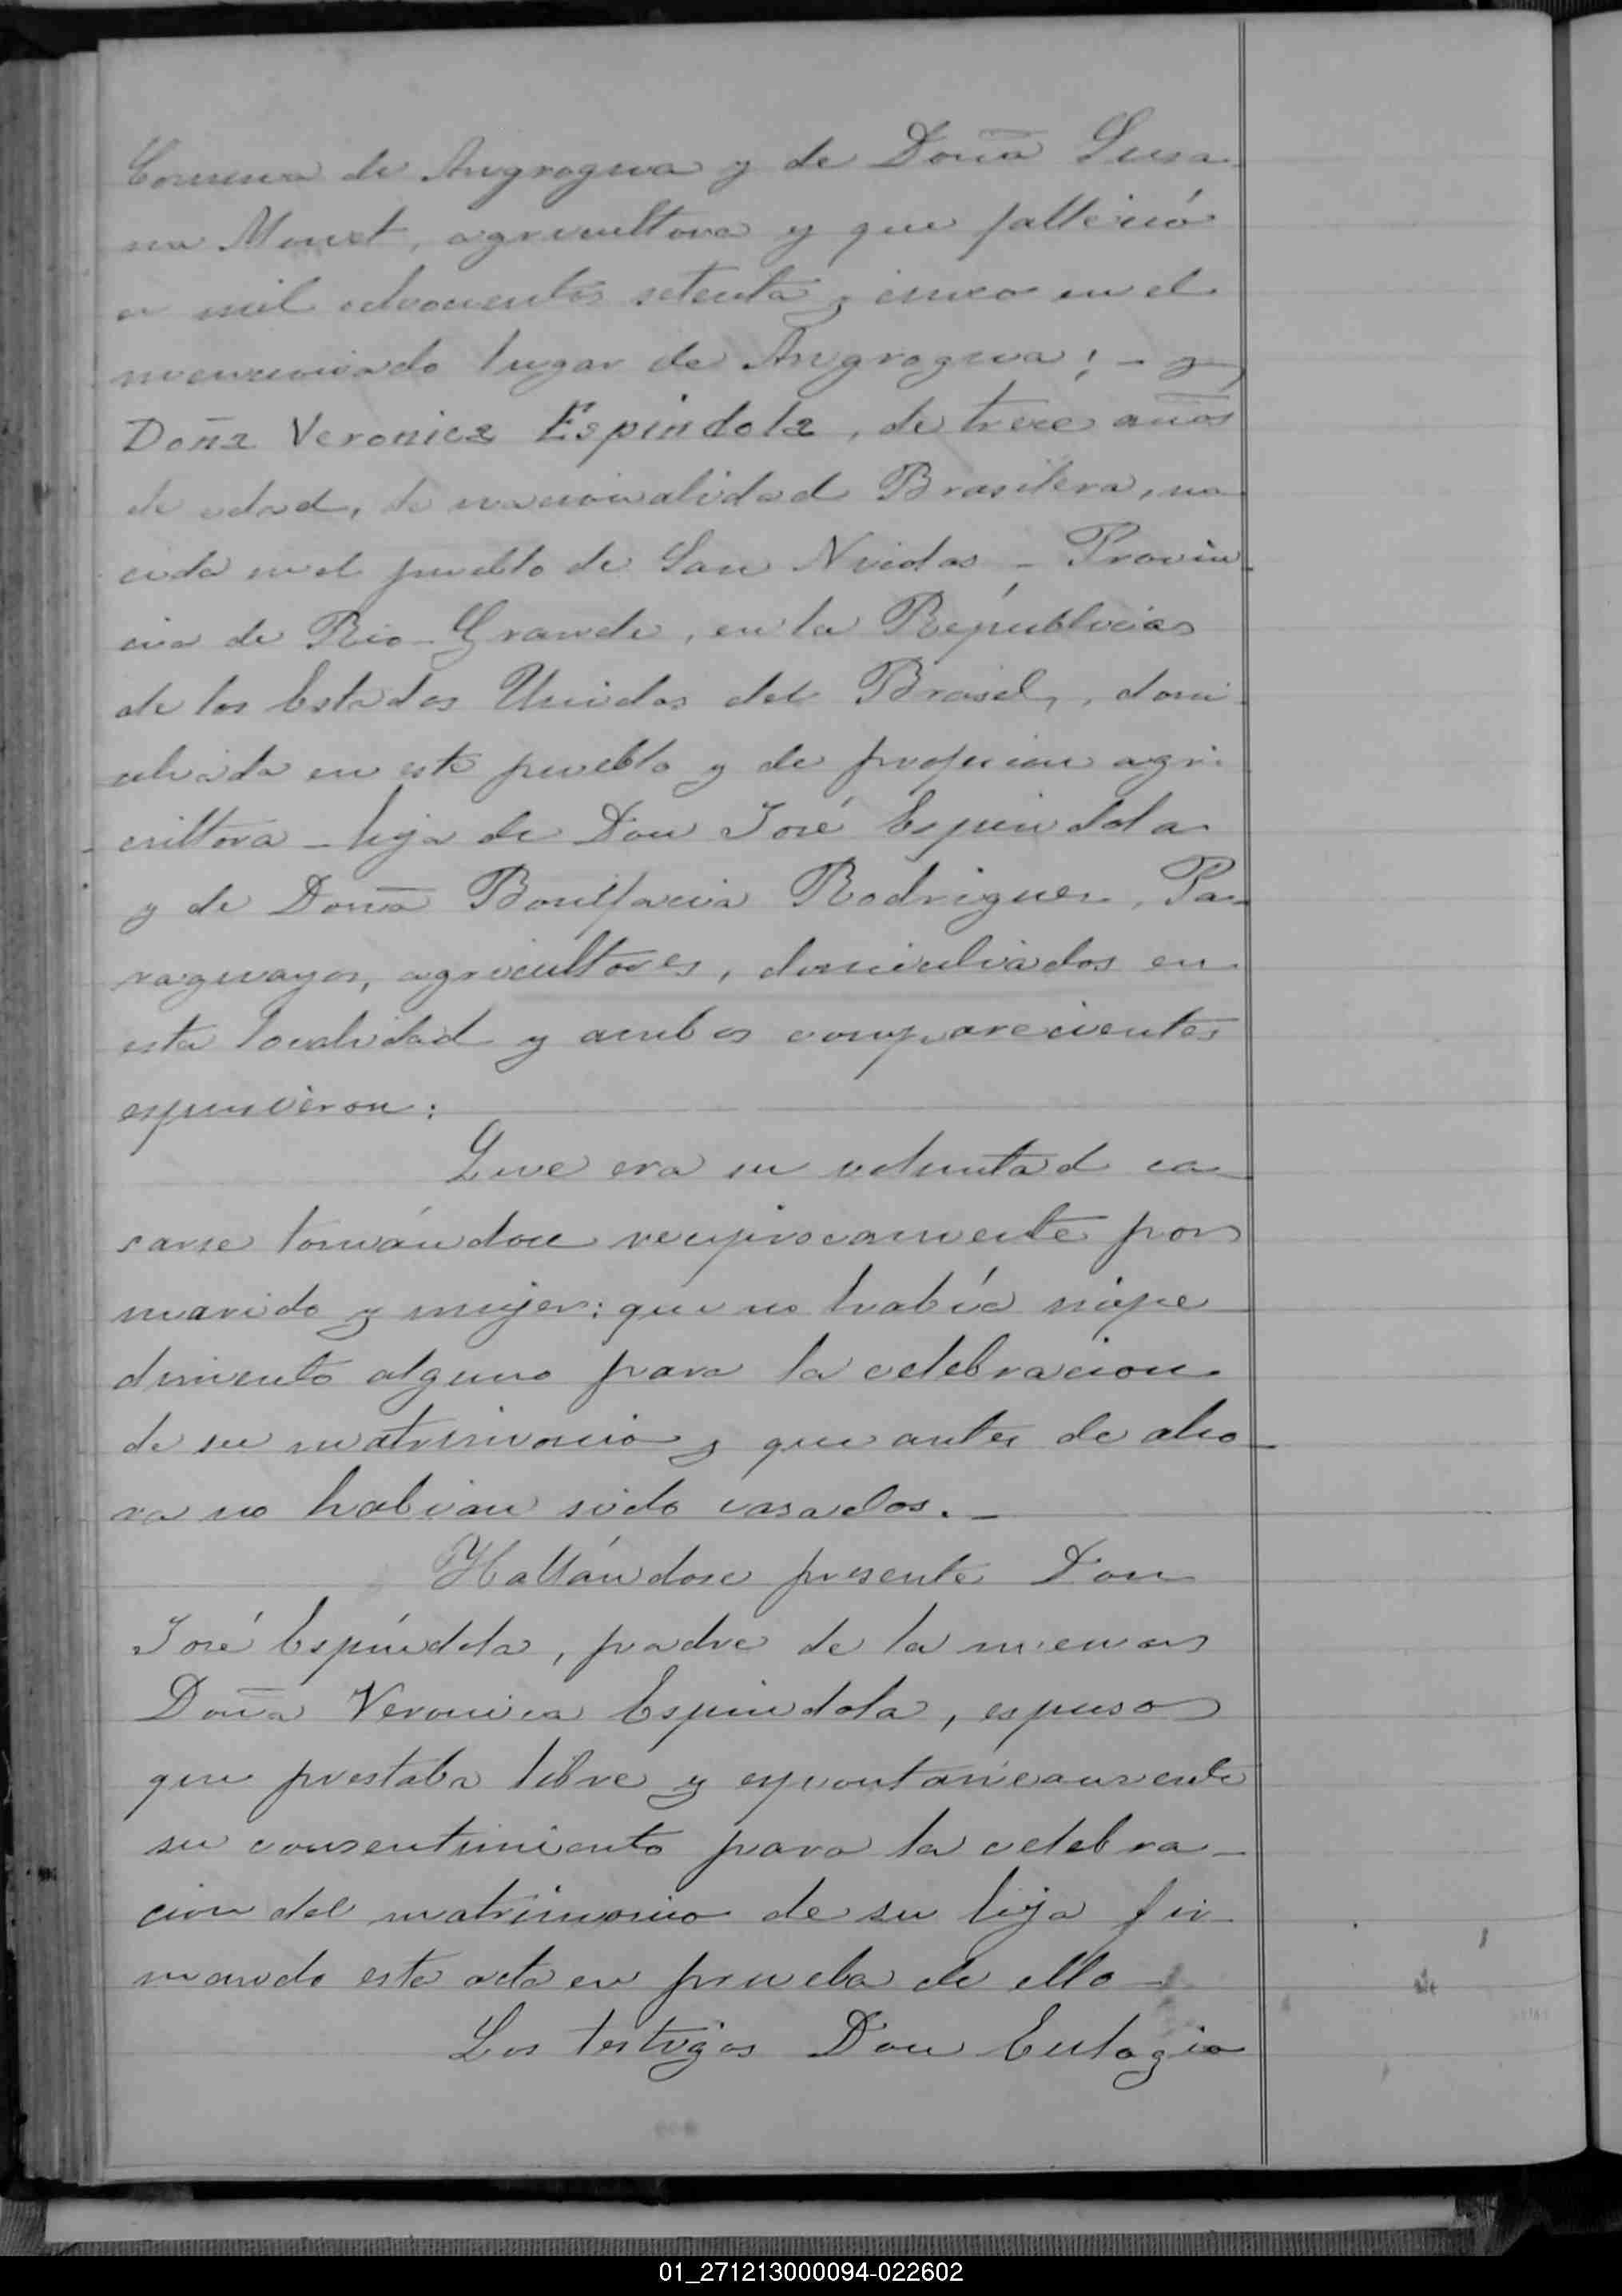 Comuna de Angrogna y de Doña Susa-
na Monet, agricultora y que falleció
en mil ochocientos setenta y cinco en el
mencionado lugar de Angrogna; - y
Doña Veronica Espindola, de trece años
de edad, de nacionalidad Brasilera, na-
cida en el pueblo de San Nicolas - Provin-
cia de Rio-Grande, en la República
de los Estados Unidos del Brasil, domi-
ciliada en este pueblo y de profesion agri-
cultora - hija de Don José Espindola
y de Doña Bonifacia Rodriguez, Pa-
raguayos, agricultores, domiciliados en
esta localidad y ambos comparecientes
espusieron:
Que era su voluntad ca-
sarse tomándose reciprocamente por
marido y mujer: que no había impe
dimento alguno para la celebracion
de su matrimonio y que antes de aho-
ra no habian sido casados. -
Hallándose presente Don
José Espíndola, padre de la menor
Doña Veronica Espindola, espuso
que prestaba libre y espontáneamente
su consentimiento para la celebra-
cion del matrimonio de su hija fir-
mando esta acta en prueba de ello -
Los testigos Don Eulogio
01_271213000094-022602